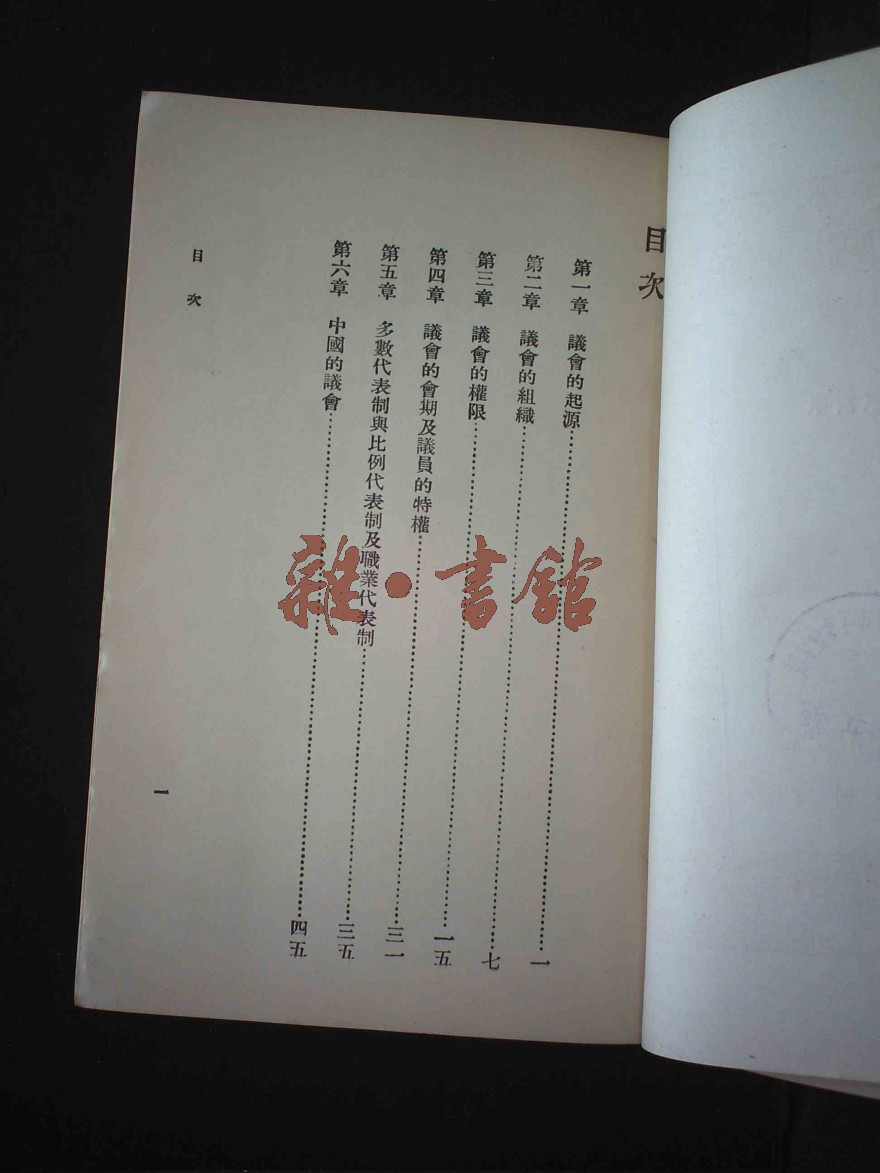 目次
第一章　議會的起源……一
第二章　議會的組織……七
第三章　議會的權限……一五
第四章　議會的會期及議員的特權……三一
第五章　多數代表制與比例代表制及職業代表制……三五
第六章　中國的議會……四五
目次
一
雜·書館